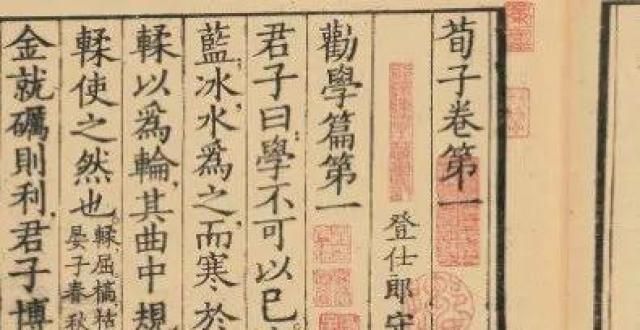 荀子卷第一
登仕郎守
勸學篇第一
君子曰學不可以已
藍冰水爲之而寒於
輮以爲輪其曲中規
輮使之然也 輮屈槁枯
晏子春秋
金就礪則利君子博